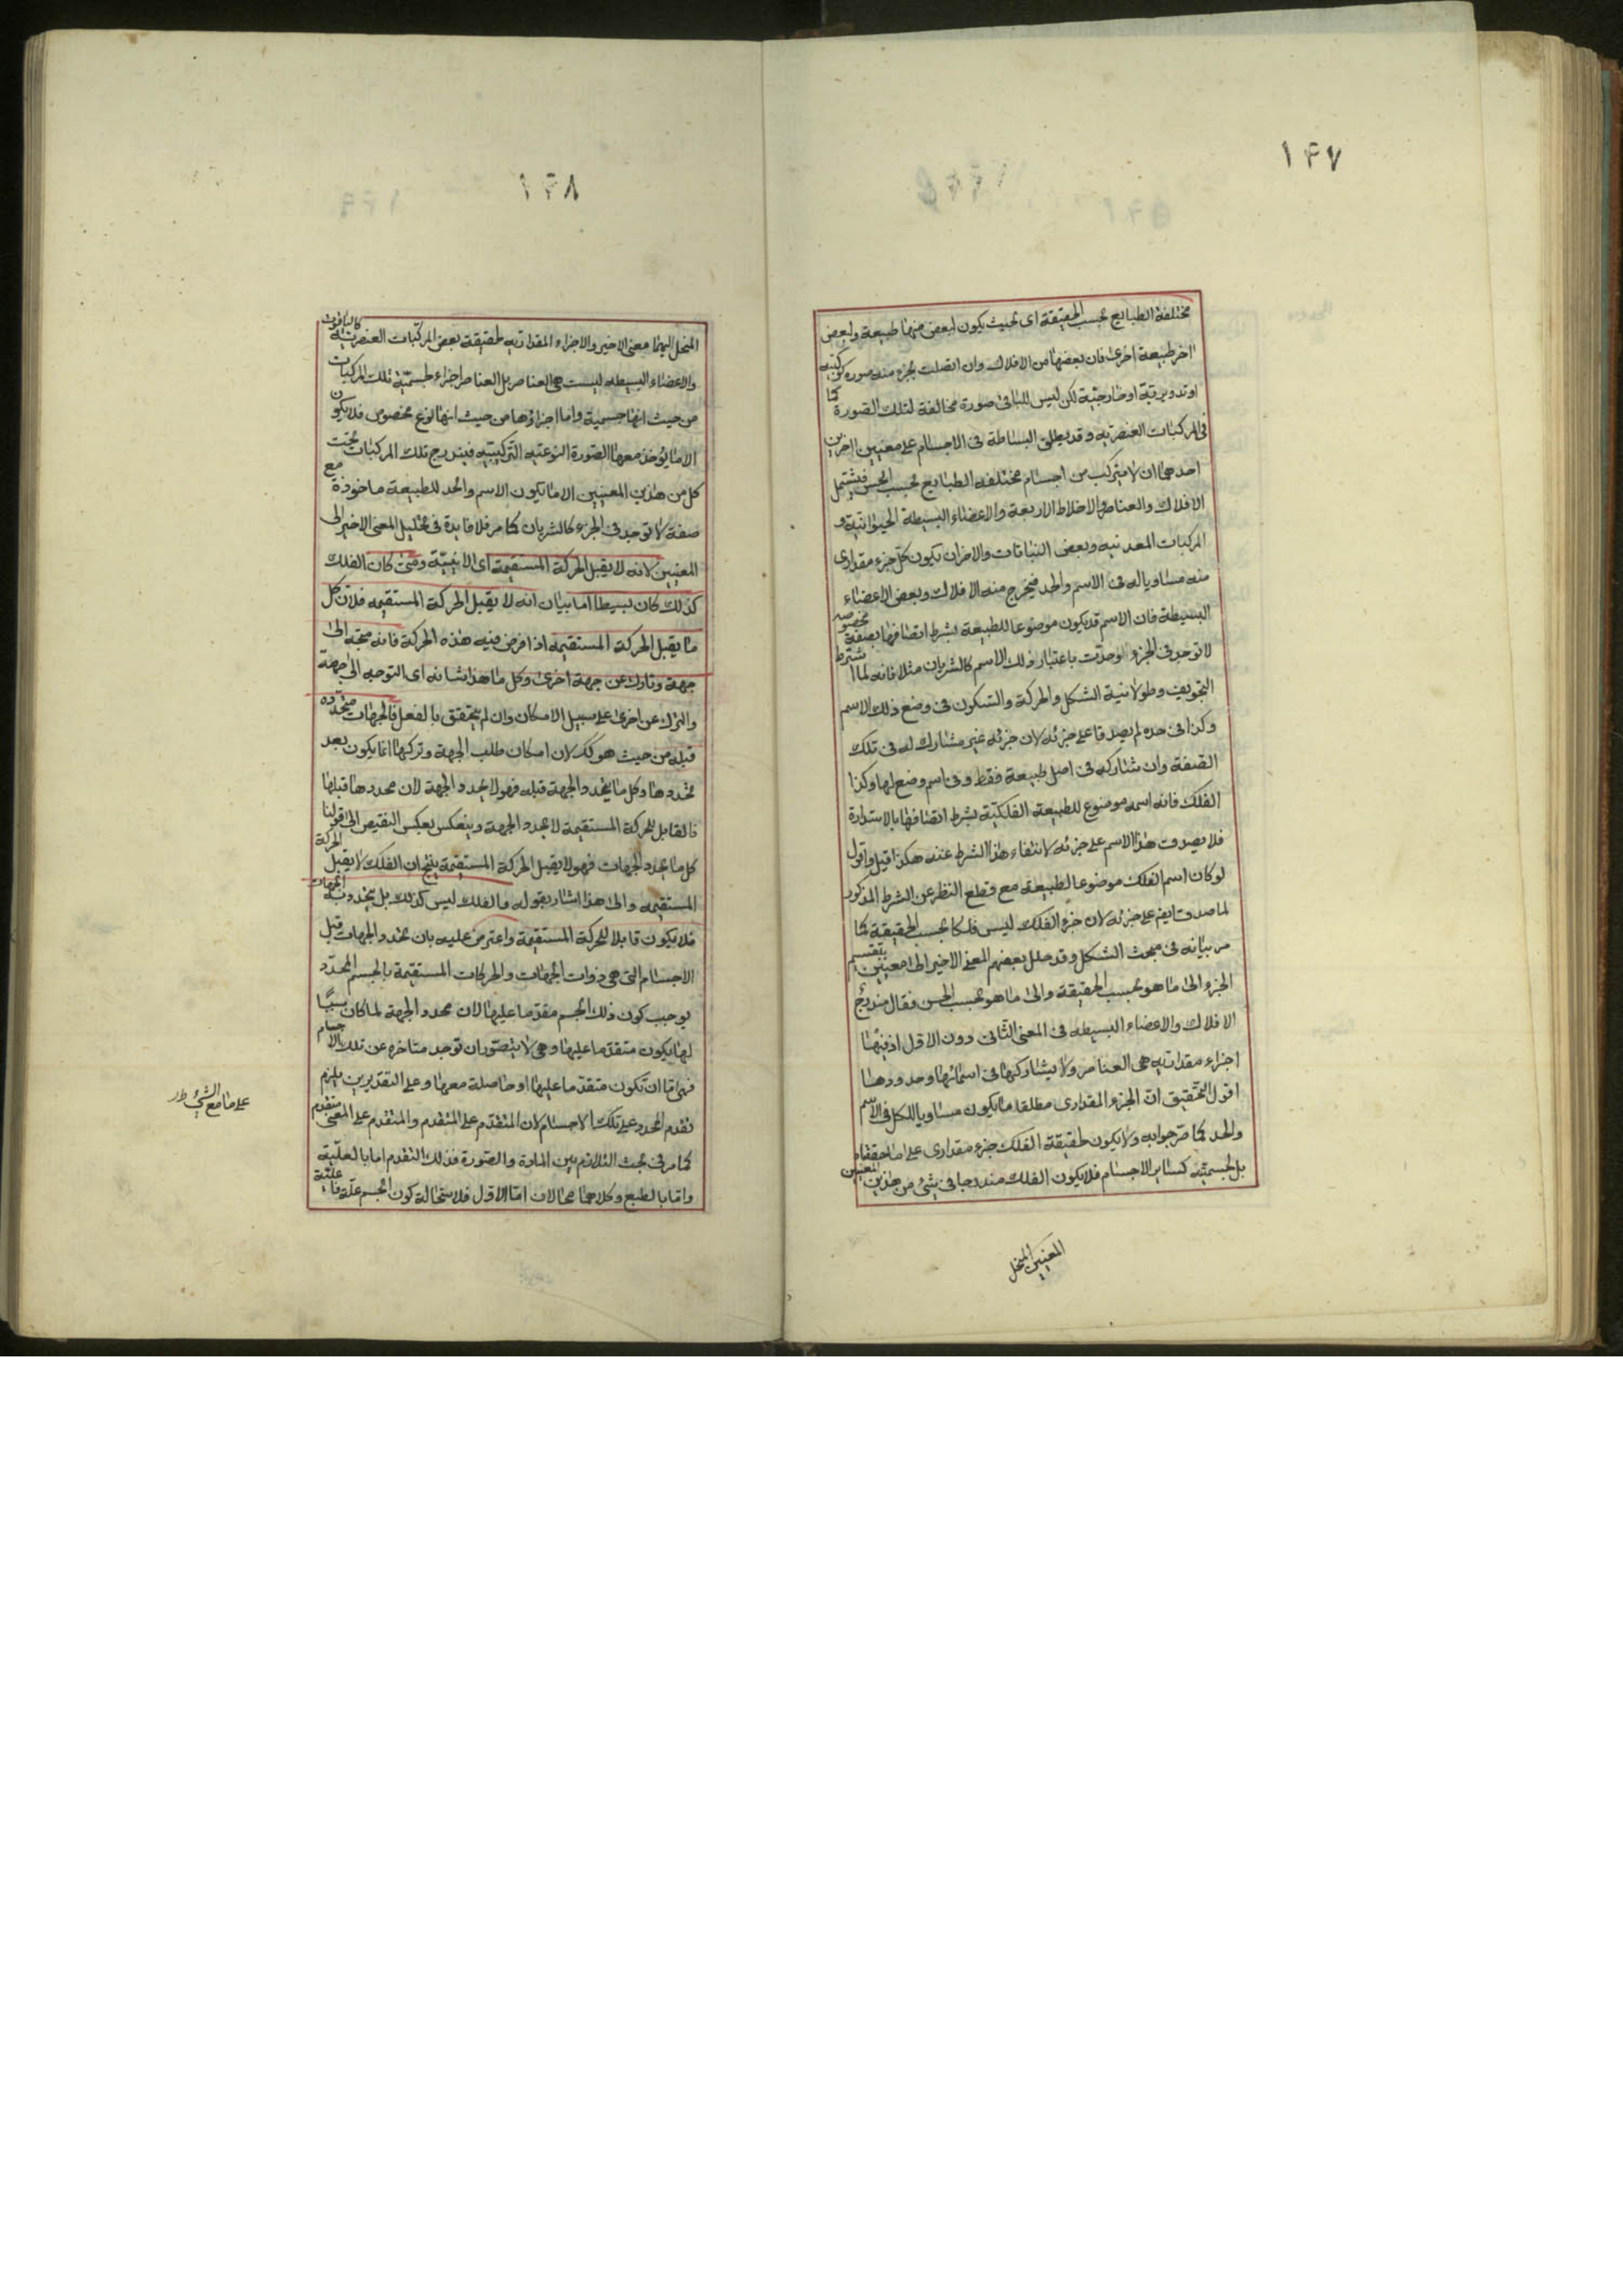 ١۴٧
مختلفة الطبايع بحسب الحقيقة اى بحيث يكون لبعض منها طبيعة ولبعض
اخر طبيعة اخرى فان بعضها من الافلاك وان اتصلت بجزء منه صورة كوكبيه
او تدويرية او خارجية لكن ليس للباقى صورة مخالفة لتلك الصورة كما
فى المركبات العنصريه وقد يطلق البساطة فى الاجسام على معنيين اخرين
احدهما ان لا يتركب من اجسام مختلفه الطبايع بحسب الحس فيشتمل
الافلاك والعناصر والاخلاط الاربعة والاعضاء البسيطة الحيوانية و
المركبات المعدنيه وبعض النباتات والاخران يكون كل جزء مقدارى
منه مساويا له فى الاسم والحد فيخرج منه الافلاك وبعض الاعضاء
البسيطة فان الاسم قد يكون موضوعا للطبيعة بشرط اتصافها بصفة مخصوصه
لا توجد فى الجزء وحدت باعتبار ذلك الاسم كالشريان مثلا فانه لما اشترط
التجويف وطولانية الشكل والحركة والسكون فى وضع ذلك الاسم
وكذا فى حده لم يصدقا على جزئه لان جزئه غير مشارك له فى تلك
الصفة وان شاركه فى اصل طبيعة فقط وفى اسم وضع لها وكذا
الفلك فانه اسمه موضوع للطبيعة الفلكيّة بشرط اتصافها بالاستدارة
فلا يصدق هذا الاسم على جزئه لانتفاء هذا الشرط عنده هكذا قيل واقول
لو كان اسم الفلك موضوعا لطبيعة مع قطع النظر عن الشرط المذكور
لما صدق ايض على جزئه لان جزء الفلك ليس فلكا بحسب الحقيقة كما
مر بيانه فى مبحث الشكل وقد حلل بعضهم المعنى الاخير الى معنيين بتقسيم
الجزء الى ما هو بحسب الحقيقة والى ما هو بحسب الحس فقال مندرج
الافلاك والاعضاء البسيطه فى المعنى الثانى دون الاول اذ فيهما
اجزاء مقداريه هى العناصر ولا يشاركها فى اسمائها وحدودها
اقول التحقيق ان الجزء المقدارى مطلقا ما يكون مساويا للكل فى الاسم
والحد كما صرّحوا به ولا يكون لحقيقة الفلك جزء مقدارى على ما حققناه
بل لجسميته كساير الاجسام فلا يكون الفلك مندرجا فى شئ من هذين المعنيين
المعنيين المنحل
١۴٨
المنحل اليهما معنى الاخير والاجزاء المقداريه لحقيقة بعض المركبات العنصريه كالياقوت
والاعضاء البسيطه ليست هى العناصر بل العناصر اجزاء لجسميّة تلك المركبات
من حيث انها جسمية واما اجزاؤها من حيث انها نوع مخصوص فلا يكون
الا ما يؤخذ معها الصورة النوعيه التركيبيه فيندرج تلك المركبات تحت
كل من هذين المعنيين الا ما يكون الاسم والحد للطبيعة ماخوذة مع
صفة لا توجد فى الجزء كالشريان كما مر فلا فايدة فى تحليل المعنى الاخير الى
المعنيين لانه لا يقبل الحركة المستقيمة اى الاينيّة ومتى كان الفلك
كذلك كان بسيطا اما بيان انه لا يقبل الحركة المستقيمه فلان كل
ما يقبل الحركة المستقيمه اذا فرض فيه هذه الحركة فانه متجه الى
جهة وتارك عن جهة اخرى وكل ما هذا شانه اى التوجه الى جهة
والترك عن اخرى على سبيل الامكان وان لم يتحقق بالفعل فالجهات متحدده
قبله من حيث هو كك لان امكان طلب الجهة وتركها انما يكون بعد
تحددها وكل ما يتحدد الجهة قبله فهو لا يحدد الجهة لان محددها قبلها
فالقابل للحركة المستقيمة لا يحدد الجهة وينعكس بعكس النقيض الى قولنا
كل ما يحدد الجهات فهو لا يقبل الحركة المستقيمة ينتج ان الفلك لا يقبل الحركة
المستقيمه والى هذا اشار بقوله والفلك ليس كذلك بل يتحدد به الجهات
فلا يكون قابلا للحركة المستقيمة واعترض عليه بان تحدد الجهات قبل
الاجسام التى هى ذوات الجهات والحركات المستقيمة بالجسم المحدد
يوجب كون ذلك الجسم مقدما عليها لان محدد الجهة لما كان سببًا
لها يكون متقدما عليها وهى لا يتصور ان توجد متاخره عن تلك الاجسام
فهى اما ان تكون متقدما عليها او حاصلة معها وعلى التقديرين يلزم
تقدم المحدد على تلك الاجسام لان المتقدم على المتقدم والمتقدم على المعى متقدم
كما مر فى بحث التلازم بين المادة والصورة فذلك التقدم اما بالعلية
واما بالطبع وكلاهما محالان اما الاول فلاستحالة كون الجسم علة فاعلية
على ما مع الشئ